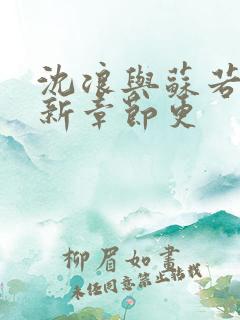 沈浪與蘇若
新章節更
柳眉如畫
未經同意禁止轉載